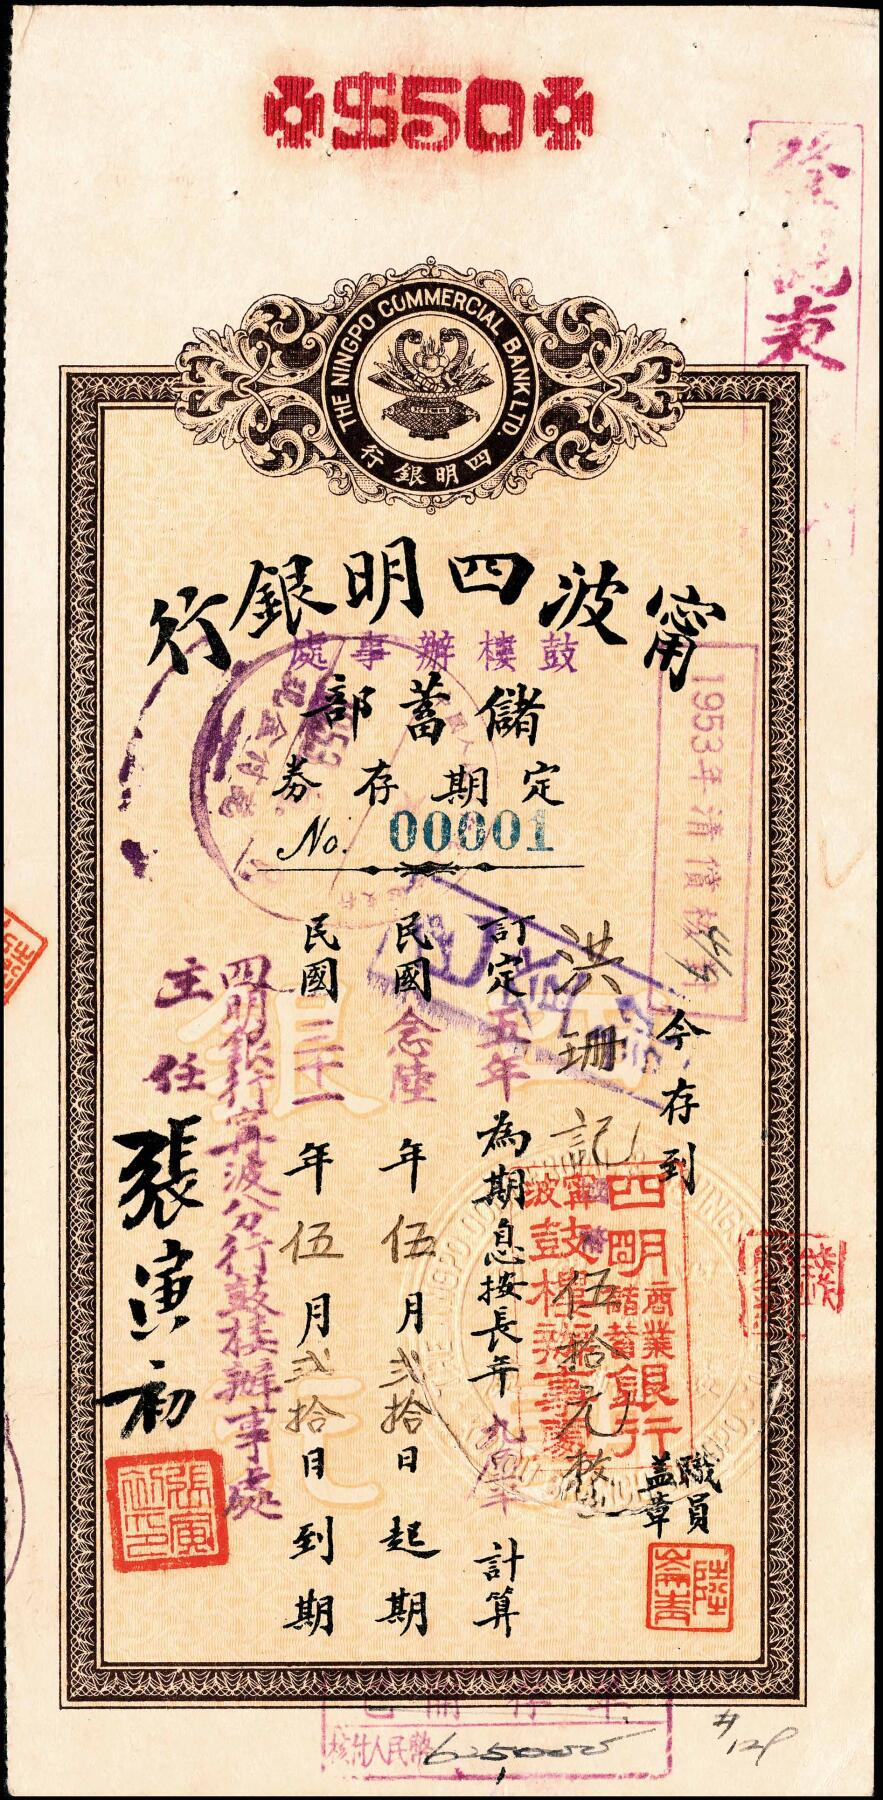 $50
THE NINGPO COMMERCIAL BANK LTD.
四明銀行
甯波四明銀行
鼓樓辦事處
儲蓄部
定期存券
No. 00001
今存到
洪珊記
伍拾元
訂定五年為期息按長年九厘計算
民國念陸年伍月弍拾日起期
民國三十一年伍月弍拾日到期
四明銀行寧波分行鼓樓辦事處
主任
張寅初
四明商業銀行
儲蓄
甯波鼓樓辦事處
職員
蓋章
1953年清償
1953
現金付訖
核付人民幣 625000
#129